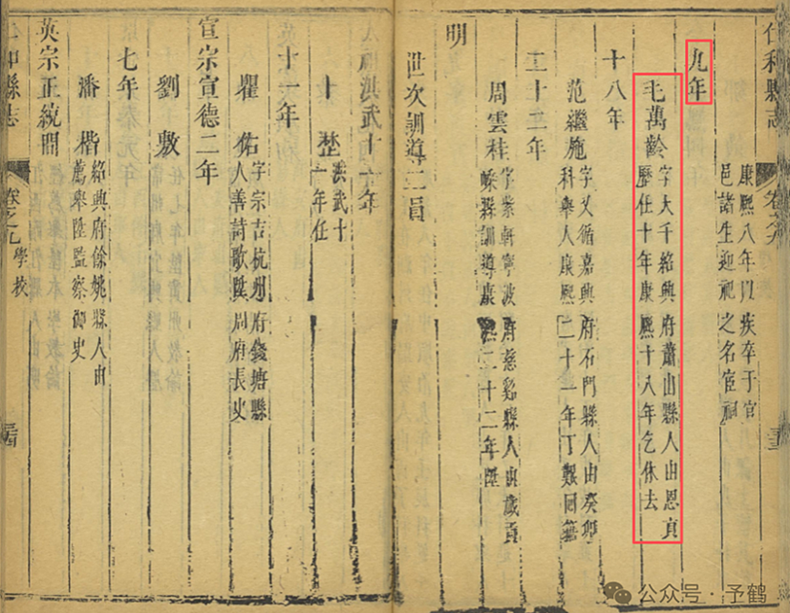 仁和縣志
康熙八年以疾卒于官
邑諸生迎祀之名宦祠
九年
毛萬齡
字大千紹興府蕭山縣人由恩貢
歷任十年康熙十八年乞休去
十八年
范繼施
字又循嘉興府石門縣人由癸卯
科舉人康熙二十一年丁艱回籍
二十二年
周雲桂
字紫朝寧波府慈谿縣人由歲貢
嵊縣訓導康熙二十二年陞
明
世次訓導二員
洪武十一年
洪武十
一年任
十一年
瞿佑
字宗吉杭州府錢塘縣
人善詩歌陞周府長史
宣宗宣德二年
劉敷
七年
潘楷
紹興府餘姚縣人由
薦舉陞監察御史
英宗正統間
縣志
卷之
學校
公众号·予鹤